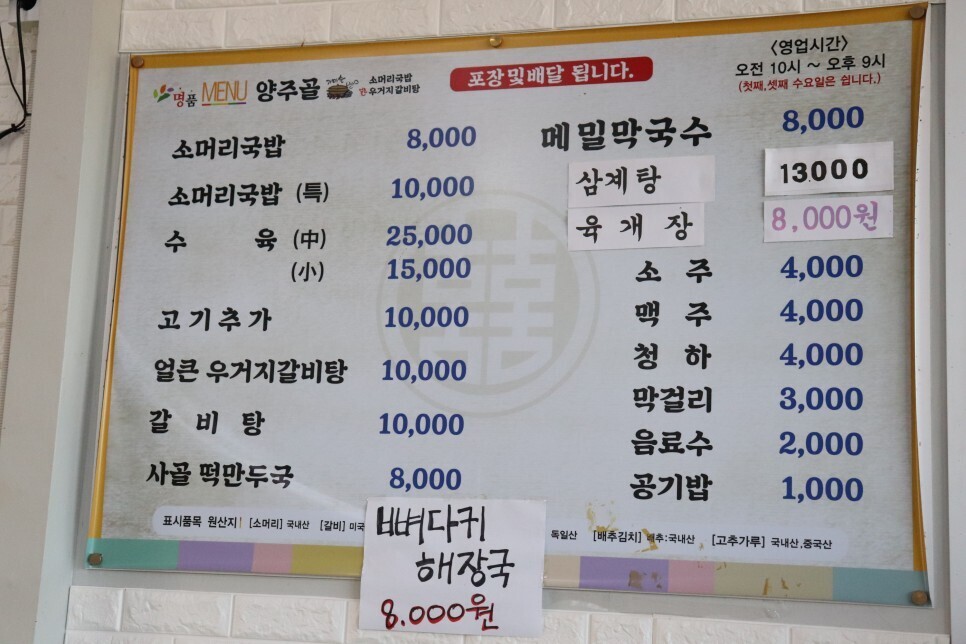 명품 MENU 양주골 소머리국밥
우거지갈비탕
포장및배달 됩니다.
〈영업시간〉
오전 10시 ~ 오후 9시
(첫째,셋째 수요일은 쉽니다.)
소머리국밥 8,000
소머리국밥 (特) 10,000
수 육 (中) 25,000
(小) 15,000
고기추가 10,000
얼큰 우거지갈비탕 10,000
갈비탕 10,000
사골 떡만두국 8,000
메밀막국수 8,000
삼계탕 13.000
육개장 8,000원
소 주 4,000
맥 주 4,000
청 하 4,000
막걸리 3,000
음료수 2,000
공기밥 1,000
표시품목 원산지! [소머리] 국내산 [갈비] 미국 독일산 [배추김치] 배추:국내산 [고추가루] 국내산,중국산
뼈다귀
해장국
8.000원